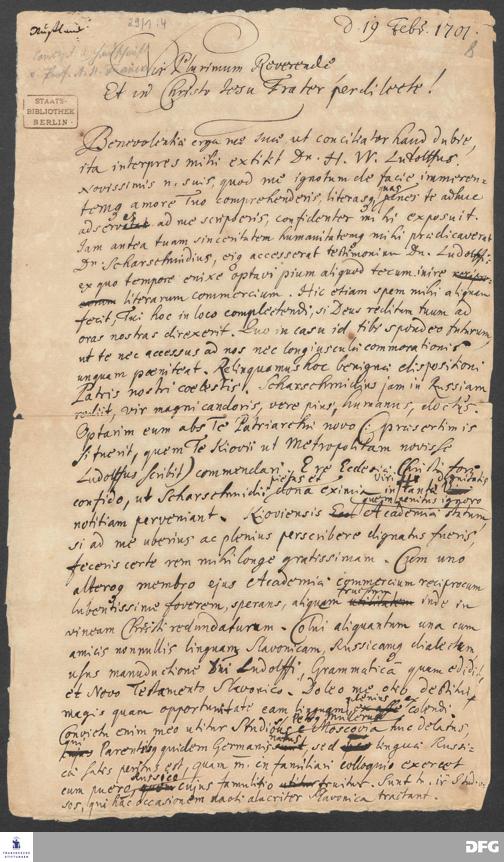 Rußland.
29/1:4
d. 19 Febr. 1701.
8
Vir Plurimum Reverende
Et in Christo Jesu Frater perdilecte!
STAATS-
BIBLIOTHEK
BERLIN
Benevolentiæ erga me suæ, ut conciliator haud dubie,
ita interpres mihi extitit Dn. H. W. Ludolffus.
Novissimis n. suis, quod me ignotum de facie immeren-
temq amore Tuo comprehenderis, literasq nuas panes te adhuc
ad me scripseris, confidenter mihi exposuit.
Jam antea tuam sinceritatem humanitatemq mihi prædicaverat
Dn. Scharschmidius, eiq accesserat testimonium Dn. Ludolffi:
ex quo tempore enixe optavi pium aliquod tecum inire
literarum commercium. Hic etiam spem mihi aliquam
fecit, Tui hoc in loco complectendi, si Deus reditum tuum ad
oras nostras direxerit. Quo in casu id tibi spondeo futurum,
ut te nec accessus ad nos nec longiusculæ commorationis
unquam pœniteat. Relinquamus hoc benignæ dispositioni
Patris nostri cœlestis. Scharschmidius jam in Russiam
rediit, vir magni candoris, vere pius, humanus, doctus.
Optarim eum abs Te Patriarchæ novo (: præsertim is
si fuerit, quem Te Kiovii ut Metropolitam novisse
Ludolffus scribit) commendari. E re Ecclesiæ Christi fore
confido, ut Scharschmidii pietas et dona eximia viri
notitiam perveniant. Kioviensis Academiæ statum
si ad me uberius ac plenius perscribere dignatus fueris
feceris certe rem mihi longe gratissimam. Cum uno
alteroq membro ejus Academiæ commercium reciprocum
lubentissime foverem, sperans, aliquam fructum inde in
vineam Christi redundaturum. Colui aliquantum una cum
amicis nonnullis linguam Slavonicam, Russicamq dialectum
usus manuductione Dni Ludolffi, Grammaticæ quam edidit,
et Novo Testamento Slavonico. Doleo me otio destitui
magis quam opportunitate eam linguam plenius excolendi.
Convictu enim meo utitur Studiosus e Moscovia huc delatus,
qui Parentibq quidem Germanis natus, sed linguæ Russi-
cæ satis peritus est, quam m. in familiari colloquio exercet
cum puero Russico cujus famulitio fruitur. Sunt h. ir Studio-
sos, qui hac occasionem nacti alacriter Slavonica tractant.
FRANCKESCHE
STIFTUNGEN
DFG